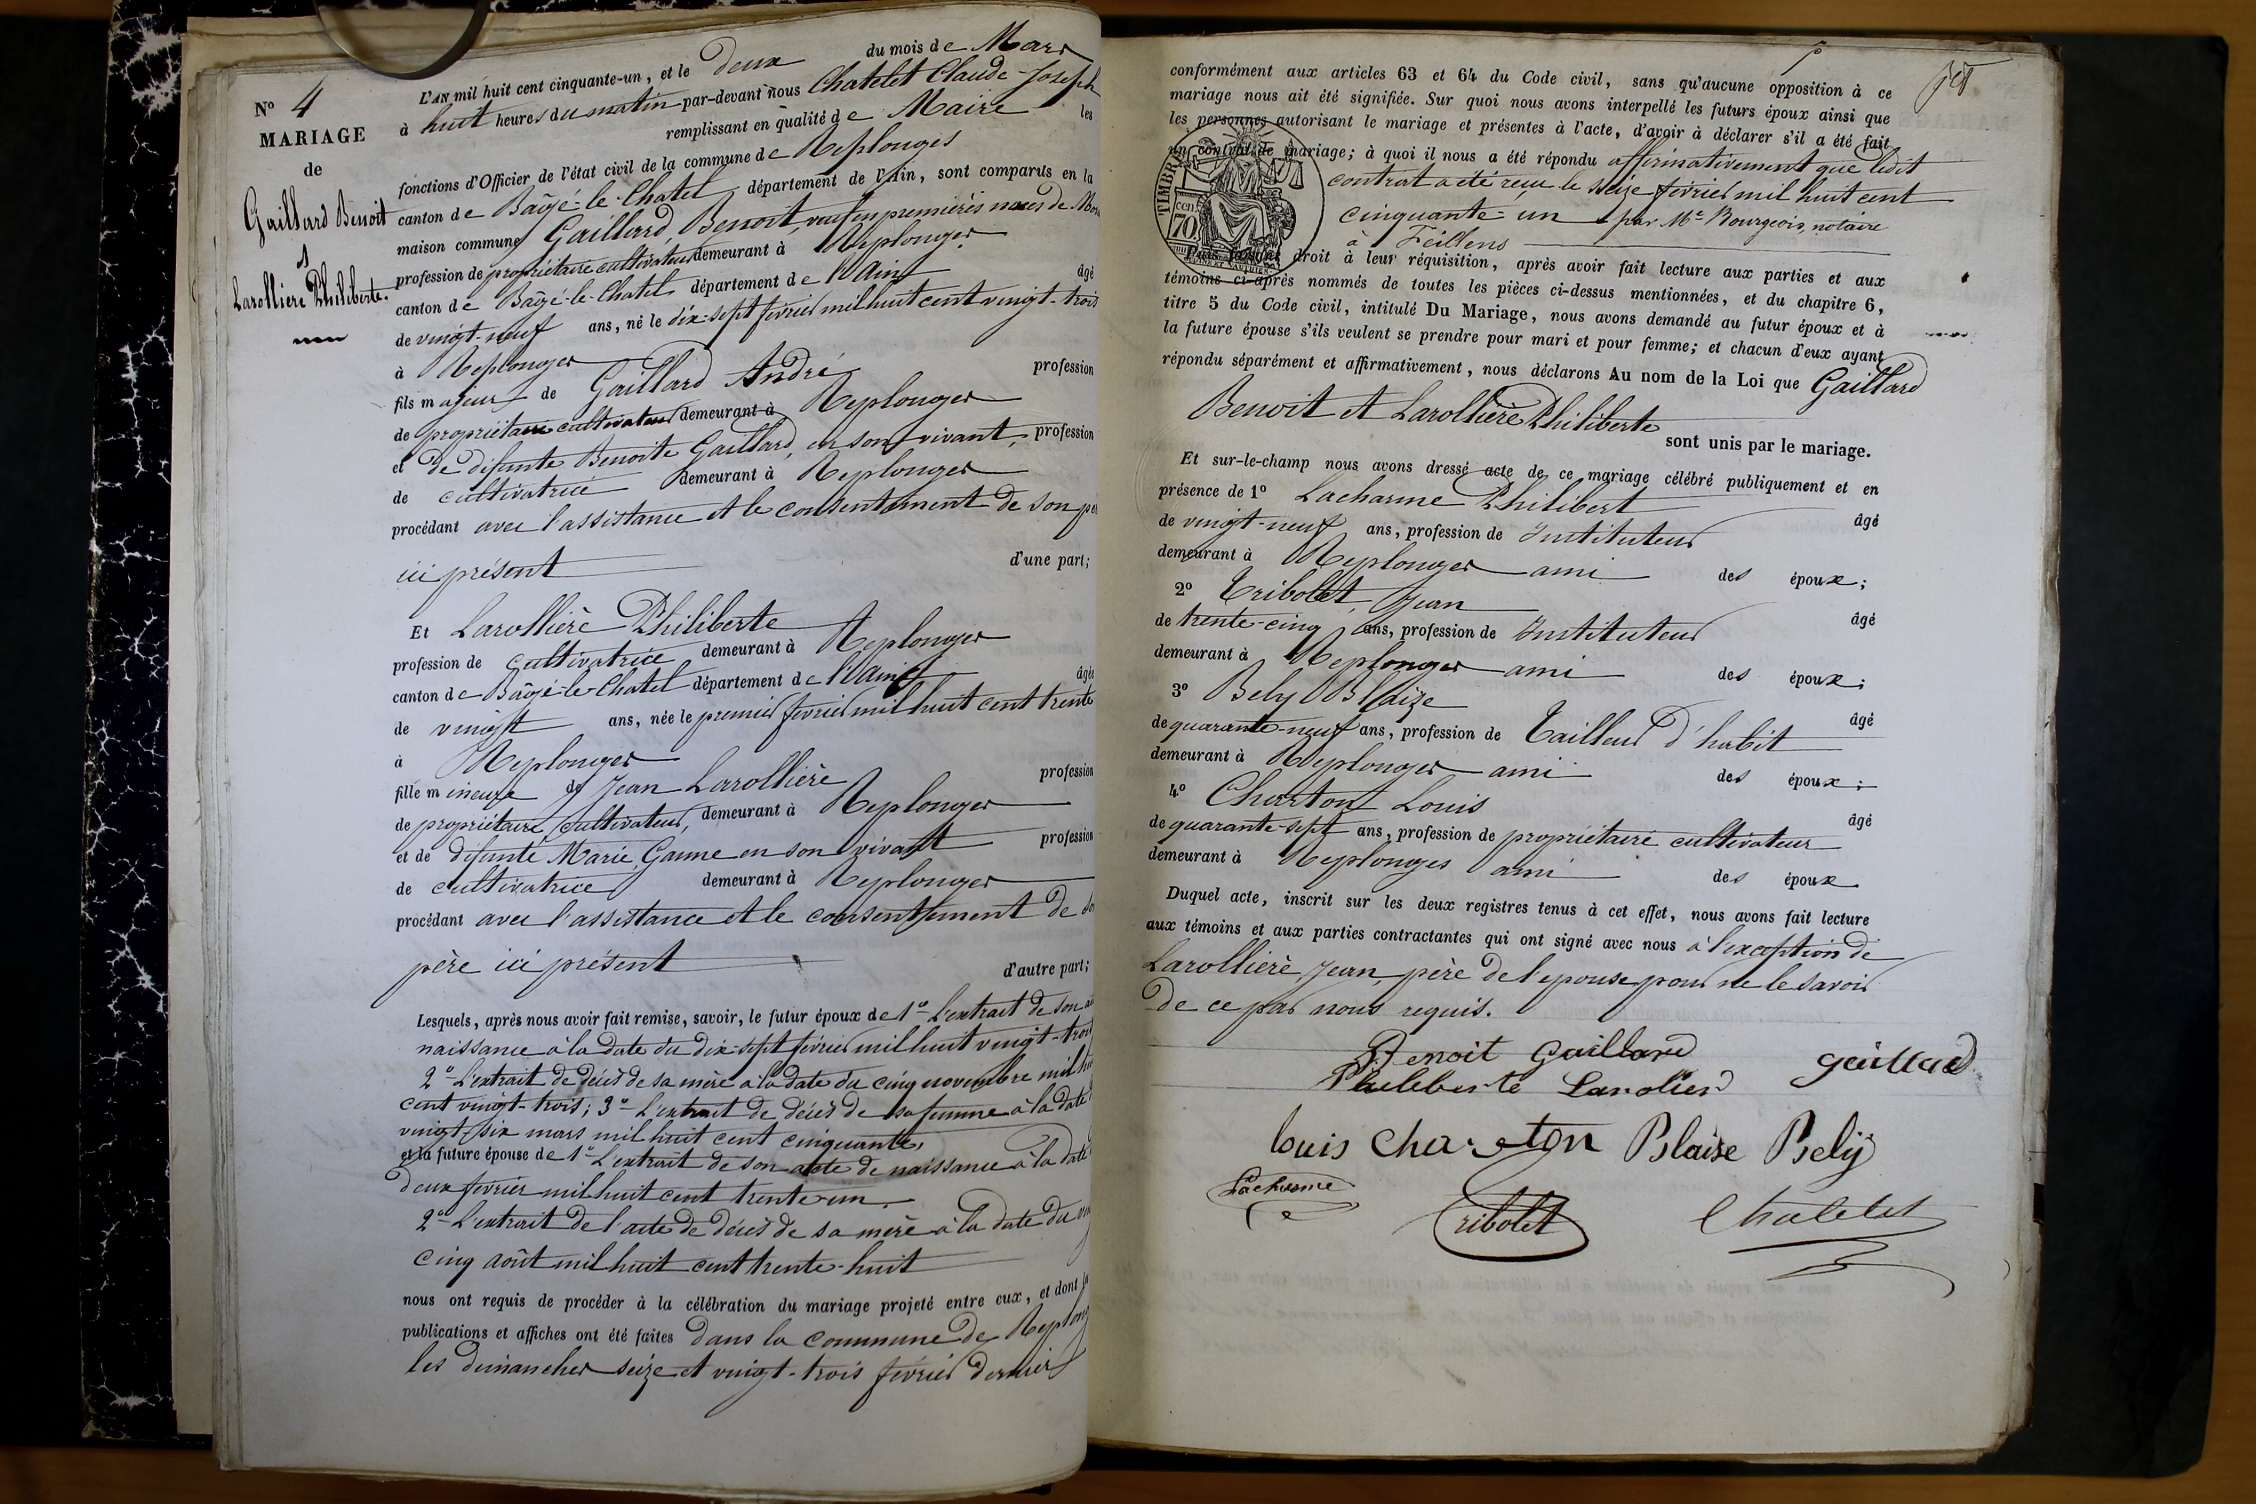 N° 4
MARIAGE
de
Gaillard Benoit
et
Larollière Philiberte.
L'AN mil huit cent cinquante-un, et le deux du mois de Mars
à huit heures du matin par-devant nous Chatelet Claude-Joseph
remplissant en qualité de Maire les
fonctions d'Officier de l'état civil de la commune de Replonges
canton de Bâgé-le-Chatel, département de l'Ain, sont comparus en la
maison commune Gaillard, Benoit, veuf en premières noces de
profession de propriétaire cultivateur demeurant à Replonges
canton de Bâgé-le-Chatel département de l'Ain âgé
de vingt-neuf ans, né le dix-sept février mil huit cent vingt-trois
à Replonges
fils majeur de Gaillard André profession
de propriétaire cultivateur demeurant à Replonges
et de défunte Benoite Gaillard, en son vivant, profession
de cultivatrice demeurant à Replonges
procédant avec l'assistance et le consentement de son
ici présent d'une part;
Et Larollière Philiberte
profession de cultivatrice demeurant à Replonges
canton de Bâgé-le-Chatel département de l'Ain âgée
de vingt ans, née le premier février mil huit cent trente
à Replonges
fille mineure de Jean Larollière profession
de propriétaire cultivateur, demeurant à Replonges
et de défunte Marie Gonne en son vivant profession
de cultivatrice demeurant à Replonges
procédant avec l'assistance et le consentement de
père ici présent d'autre part;
Lesquels, après nous avoir fait remise, savoir, le futur époux de 1° L'extrait de son
naissance à la date du dix-sept février mil huit vingt-trois
2° L'extrait de décès de sa mère à la date du cinq novembre mil
cent vingt-trois; 3° L'extrait de décès de sa femme à la date
vingt-six mars mil huit cent cinquante,
et la future épouse de 1° L'extrait de son acte de naissance à la date
deux février mil huit cent trente-un.
2° L'extrait de l'acte de décès de sa mère à la date du
cinq août mil huit cent trente-huit
nous ont requis de procéder à la célébration du mariage projeté entre eux, et dont
publications et affiches ont été faites dans la commune de
les dimanches seize et vingt-trois février dernier
conformément aux articles 63 et 64 du Code civil, sans qu'aucune opposition à ce
mariage nous ait été signifiée. Sur quoi nous avons interpellé les futurs époux ainsi que
les personnes autorisant le mariage et présentes à l'acte, d'avoir à déclarer s'il a été fait
un contrat de mariage; à quoi il nous a été répondu affirmativement que ledit
contrat a été reçu le seize février mil huit cent
cinquante-un par Me Bourgeois, notaire
à Feillens
TIMBRE
70 cen.
Puis faisant droit à leur réquisition, après avoir fait lecture aux parties et aux
témoins ci-après nommés de toutes les pièces ci-dessus mentionnées, et du chapitre 6,
titre 5 du Code civil, intitulé Du Mariage, nous avons demandé au futur époux et à
la future épouse s'ils veulent se prendre pour mari et pour femme; et chacun d'eux ayant
répondu séparément et affirmativement, nous déclarons Au nom de la Loi que Gaillard
Benoit et Larollière Philiberte
sont unis par le mariage.
Et sur-le-champ nous avons dressé acte de ce mariage célébré publiquement et en
présence de 1° Lacharme Philibert âgé
de vingt-neuf ans, profession de Instituteur
demeurant à Replonges ami des époux;
2° Tribolet, Jean âgé
de trente-cinq ans, profession de Instituteur
demeurant à Replonges ami des époux;
3° Bely Blaize âgé
de quarante-neuf ans, profession de Tailleur d'habit
demeurant à Replonges ami des époux;
4° Charton Louis âgé
de quarante-sept ans, profession de propriétaire cultivateur
demeurant à Replonges ami des époux
Duquel acte, inscrit sur les deux registres tenus à cet effet, nous avons fait lecture
aux témoins et aux parties contractantes qui ont signé avec nous à l'exception de
Larollière, Jean, père de l'épouse pour ne le savoir
de ce par nous requis.
Benoit Gaillard gaillard
Phileberte Larolier
Louis Charton Blaise Bely
Lacharme
Tribolet Chatelet